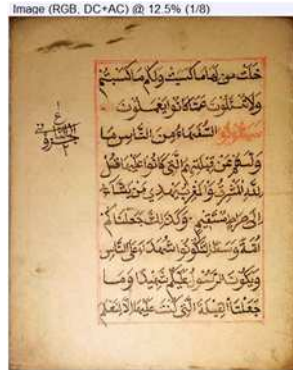 Image (RGB, DC+AC) @ 12.5% (1/8)
خلت لها ما كسبت ولكم ما كسبتم
ولا تسئلون عما كانوا يعملون
سيقول السفهاء من الناس ما
ولىهم عن قبلتهم التي كانوا عليها قل
لله المشرق والمغرب يهدي من يشاء
الى صراط مستقيم وكذلك جعلناكم
امة وسطا لتكونوا شهداء على الناس
ويكون الرسول عليكم شهيدا وما
جعلنا القبلة التي كنت عليها الا لنعلم